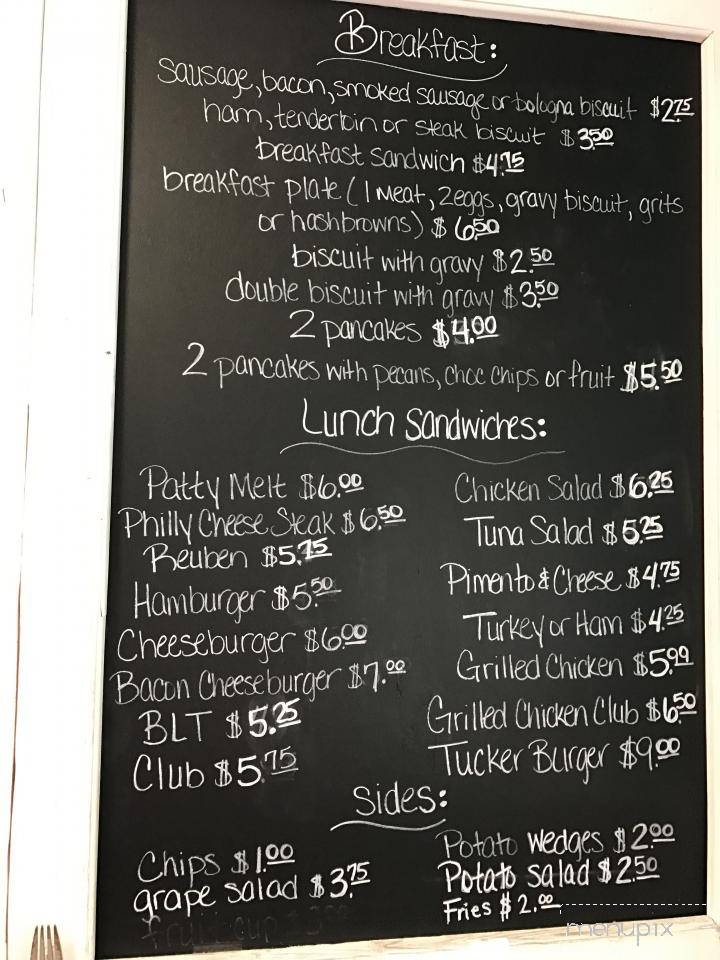 Breakfast:
sausage, bacon, smoked sausage or bologna biscuit $2.75
ham, tenderloin or steak biscuit $3.50
breakfast sandwich $4.75
breakfast plate (1 meat, 2 eggs, gravy biscuit, grits
or hashbrowns) $6.50
biscuit with gravy $2.50
double biscuit with gravy $3.50
2 pancakes $4.00
2 pancakes with pecans, choc chips or fruit $5.50
Lunch Sandwiches:
Patty Melt $6.00
Philly Cheese Steak $6.50
Reuben $5.75
Hamburger $5.50
Cheeseburger $6.00
Bacon Cheeseburger $7.00
BLT $5.25
Club $5.75
Chicken Salad $6.25
Tuna Salad $5.25
Pimento & Cheese $4.75
Turkey or Ham $4.25
Grilled Chicken $5.99
Grilled Chicken Club $6.50
Tucker Burger $9.00
Sides:
Chips $1.00
grape salad $3.75
fruit cup
Potato wedges $2.00
Potato salad $2.50
Fries $2.00
menupix